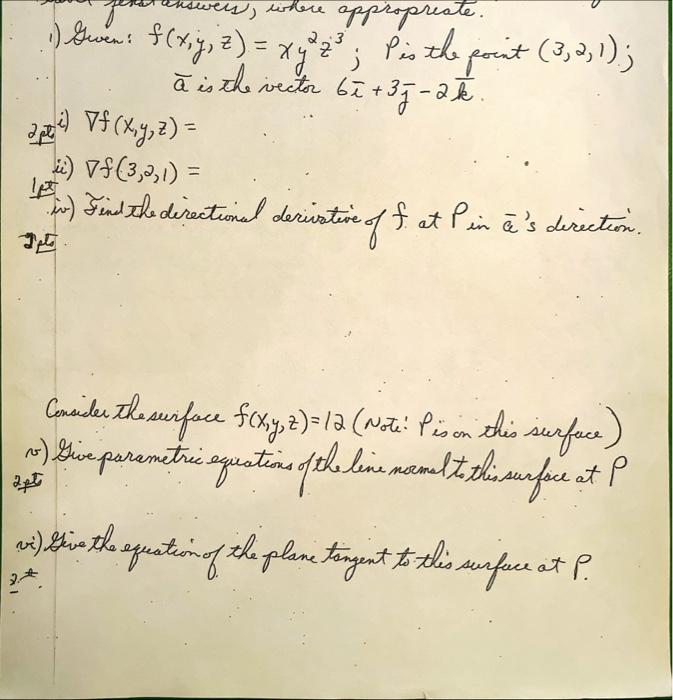 answers, where appropriate.
1) Given: f(x,y,z) = xy²z³; P is the point (3,2,1);
ā is the vector 6ī + 3j̄ - 2k̄.
2pts i) ∇f(x,y,z) =
1pt ii) ∇f(3,2,1) =
iv) Find the directional derivative of f at P in ā's direction.
pts
Consider the surface f(x,y,z)=12 (Note: P is on this surface)
v) Give parametric equations of the line normal to this surface at P
2pts
vi) Give the equation of the plane tangent to this surface at P.
2